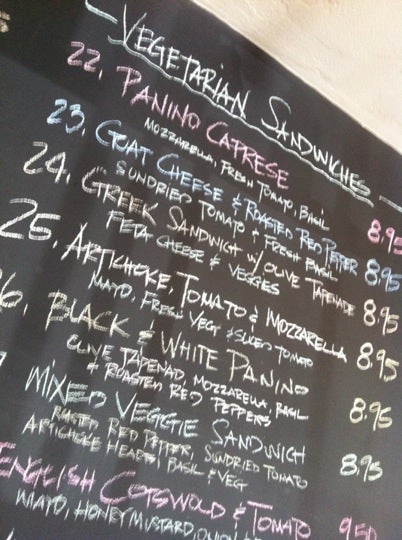 - VEGETARIAN SANDWICHES -
22. PANINO CAPRESE 8.95
MOZZARELLA, FRESH TOMATO, BASIL
23. GOAT CHEESE & ROASTED RED PEPPER 8.95
SUNDRIED TOMATO & FRESH BASIL
24. GREEK SANDWICH W/ OLIVE TAPENADE 8.95
FETA CHEESE & VEGGIES
25. ARTICHOKE, TOMATO & MOZZARELLA 8.95
MAYO, FRESH VEGT & SLICED TOMATO
26. BLACK & WHITE PANINO 8.95
OLIVE TAPENAD, MOZZARELLA, BASIL
& ROASTED RED PEPPERS
MIXED VEGGIE SANDWICH 8.95
ROASTED RED PEPPER, SUNDRIED TOMATO
ARTICHOKE HEADS, BASIL & VEG
ENGLISH COTSWOLD & TOMATO 9.50
MAYO, HONEY MUSTARD, ONION &